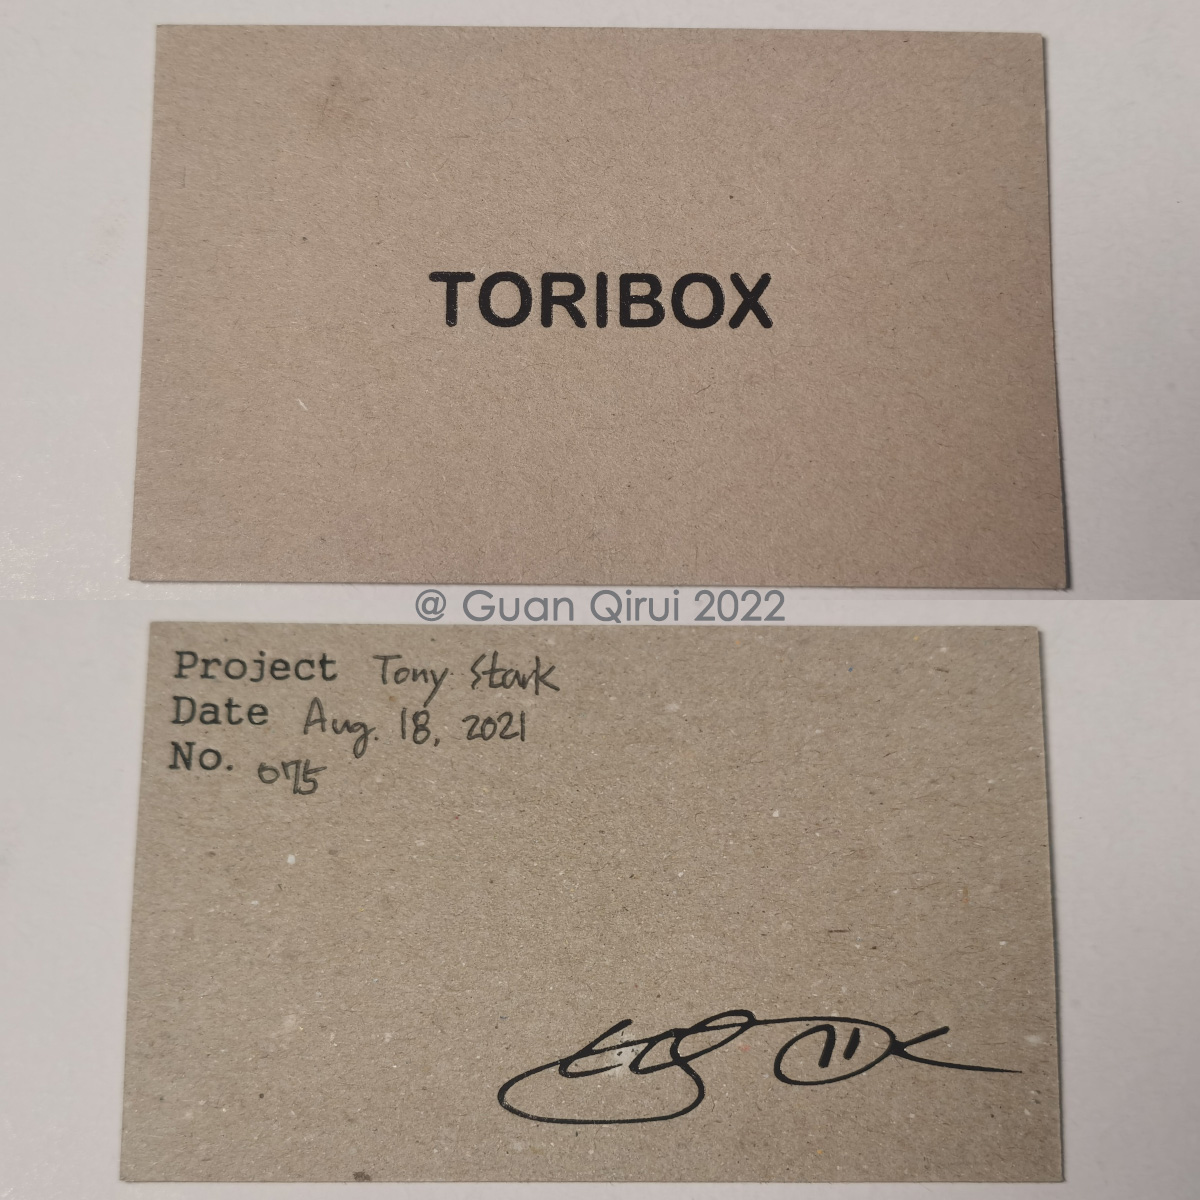 TORIBOX
@ Guan Qirui 2022
Project Tony Stark
Date Aug. 18, 2021
No. 075